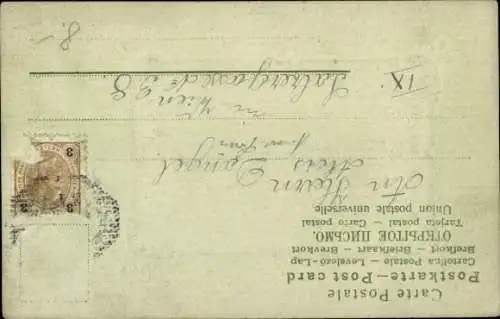 Carte Postale
Postkarte — Post card
Cartolina Postale — Levelező-Lap
Brefkort — Briefkaart — Brevkort
ОТКРЫТОЕ ПИСЬМО.
Tarjeta postal — Carto postal
Union postale universelle
An Herrn
Alois
in Wien
IX.
8.
3 3
3